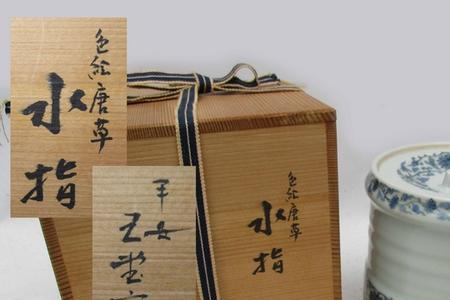 色絵唐草
水指
平安
色絵唐草
水指